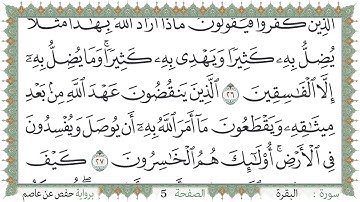 الَّذِينَ كَفَرُوا فَيَقُولُونَ مَاذَا أَرَادَ اللَّهُ بِهَٰذَا مَثَلًا
يُضِلُّ بِهِ كَثِيرًا وَيَهْدِي بِهِ كَثِيرًا ۚ وَمَا يُضِلُّ بِهِ
إِلَّا الْفَاسِقِينَ ٢٦ الَّذِينَ يَنقُضُونَ عَهْدَ اللَّهِ مِن بَعْدِ
مِيثَاقِهِ وَيَقْطَعُونَ مَا أَمَرَ اللَّهُ بِهِ أَن يُوصَلَ وَيُفْسِدُونَ
فِي الْأَرْضِ ۚ أُولَٰئِكَ هُمُ الْخَاسِرُونَ ٢٧ كَيْفَ
سورة : البقرة الصفحة 5 برواية حفص عن عاصم